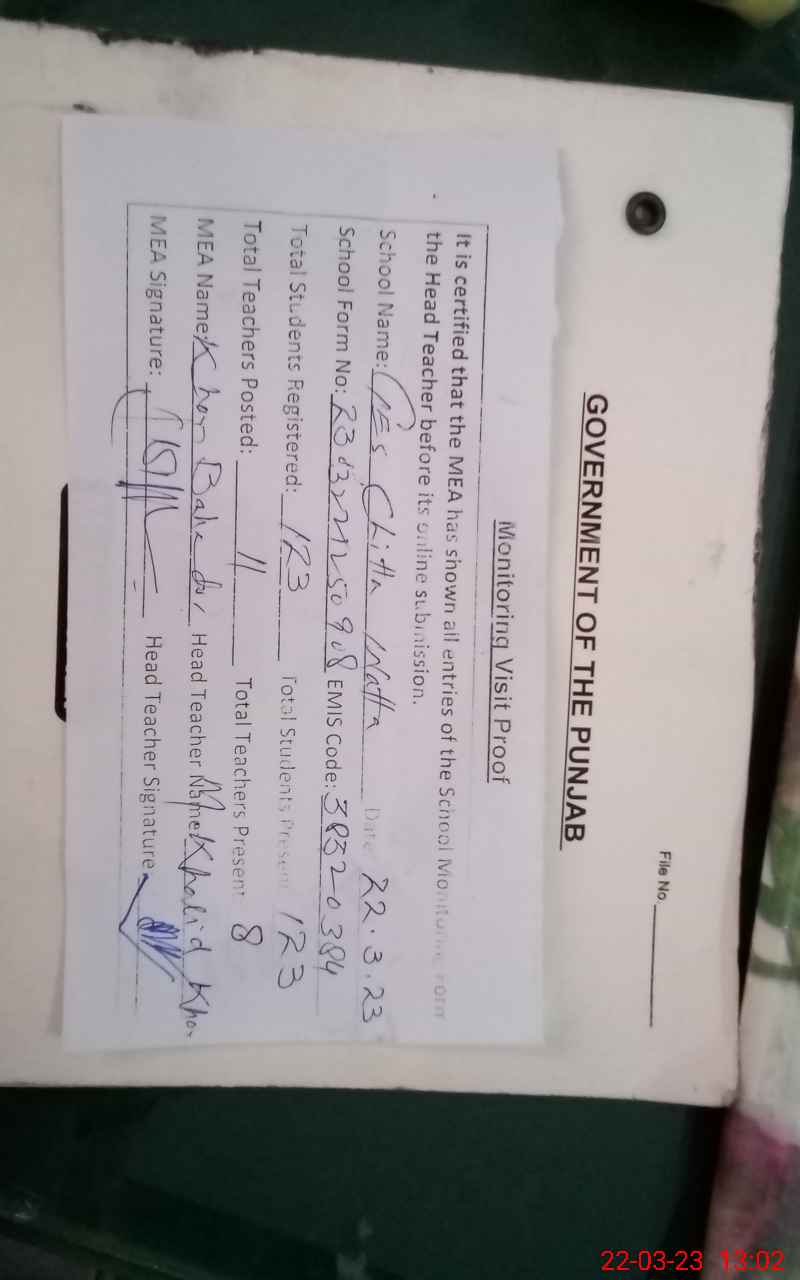 File No.
GOVERNMENT OF THE PUNJAB
Monitoring Visit Proof
It is certified that the MEA has shown all entries of the School Monitoring Form
the Head Teacher before its online submission.
School Name: GES Chitta Watta Date 22.3.23
School Form No: EMIS Code: 38320384
Total Students Registered: 123 Total Students Present 123
Total Teachers Posted: 11 Total Teachers Present 8
MEA Name: Khan Bahadur Head Teacher Name M Khalid Khan
MEA Signature: Head Teacher Signature
22-03-23 13:02